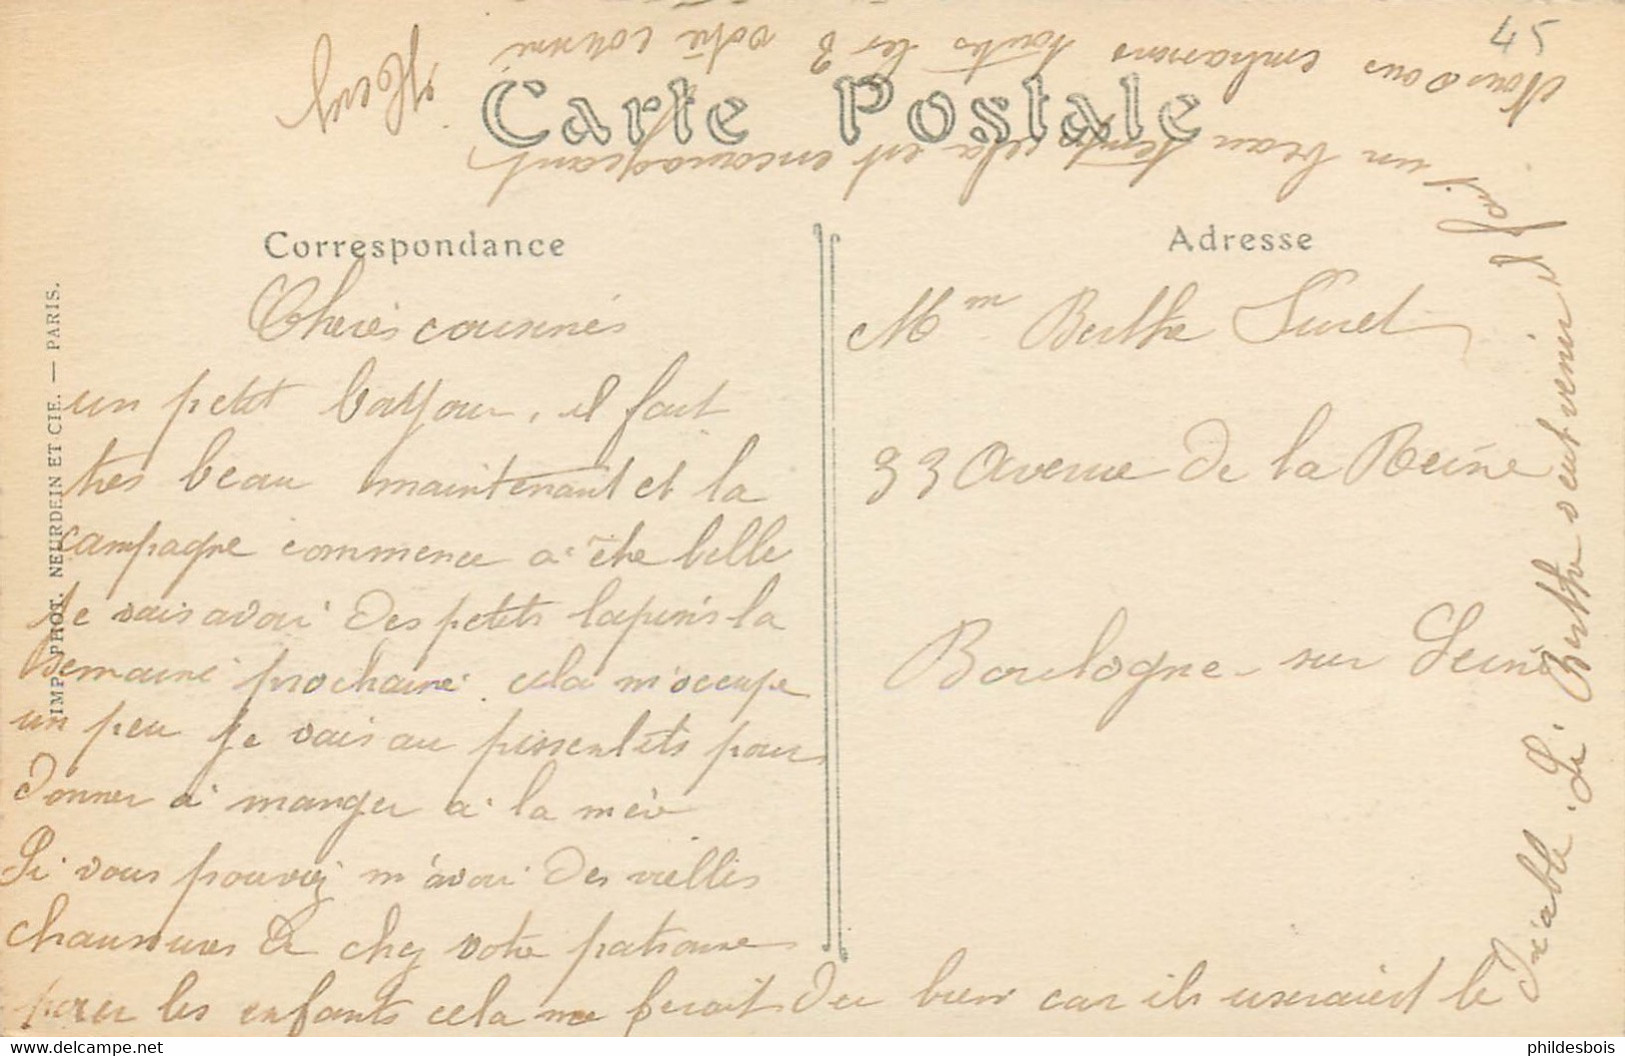 45
Carte Postale
Correspondance
Adresse
Cheres cousines
un petit bonjour, il fait
tres beau maintenant et la
campagne commence a être belle
je vais avoir des petits lapins la
semaine prochaine cela m'occupe
un peu je vais au pissenlits pour
donner à manger a la mère
Si vous pouviez m'avoir des vielles
chaussures de chez votre patronne
pour les enfants cela me ferait du bien car ils useraient le
diable. Si Berthe veut venir il fait
un beau temps cela est encourageant
Nous vous embrassons toutes les 3 votre cousine
Mme Berthe Suret
33 Avenue de la Reine
Boulogne-sur Seine
IMP. PHOT. NEURDEIN ET CIE. — PARIS.
www.delcampe.net
phildesbois